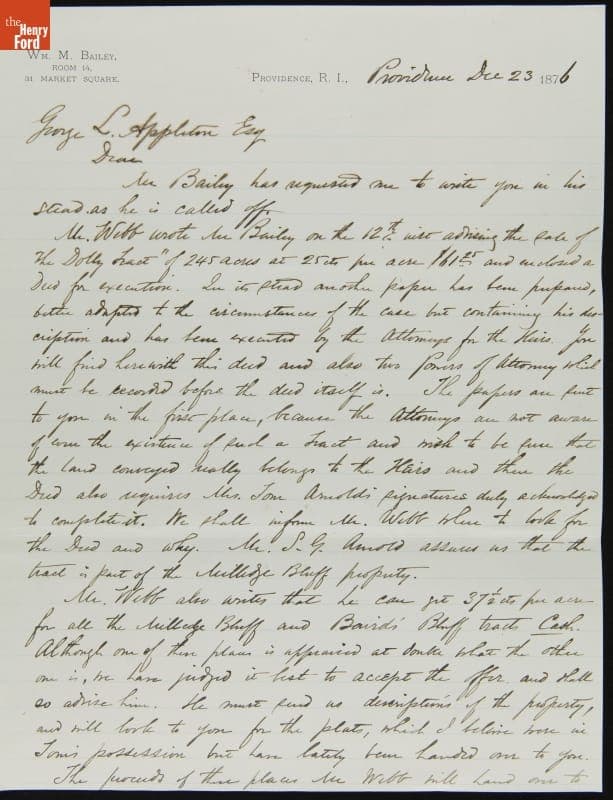 the
Henry
Ford
WM. M. BAILEY,
ROOM 14,
31 MARKET SQUARE.
PROVIDENCE, R. I., Providence Dec 23 1876
George L. Appleton Esq
Dear
Mr Bailey has requested me to write you in his
stead as he is called off.
Mr. Webb wrote Mr Bailey on the 12th inst advising the sale of
the Dolly Tract" of 245 acres at 25cts per acre $61.25 and enclosed a
Deed for execution. In its stead another paper has been prepared,
better adapted to the circumstances of the case but containing his des-
cription and has been executed by the Attorneys for the Heirs. You
will find herewith this deed and also two Powers of Attorney which
must be recorded before the deed itself is. The papers are sent
to you in the first place, because the Attorneys are not aware
of even the existence of such a Tract and wish to be sure that
the land conveyed really belongs to the Heirs and then the
Deed also requires Mrs. Tom Arnold's signatures duly acknowledged
to complete it. We shall inform Mr. Webb where to look for
the Deed and why. Mr. S. G. Arnold assures us that the
tract is part of the Milledge Bluff property.
Mr. Webb also writes that he can get 37½cts per acre
for all the Milledge Bluff and Baird's Bluff tracts Cash.
Although one of these places is appraised at double what the other
one is, we have judged it best to accept the offer and shall
so advise him. He must send us descriptions of the property,
and will look to you for the plats, which I believe were in
Tom's possession but have lately been handed over to you.
The proceeds of these places Mr Webb will hand over to